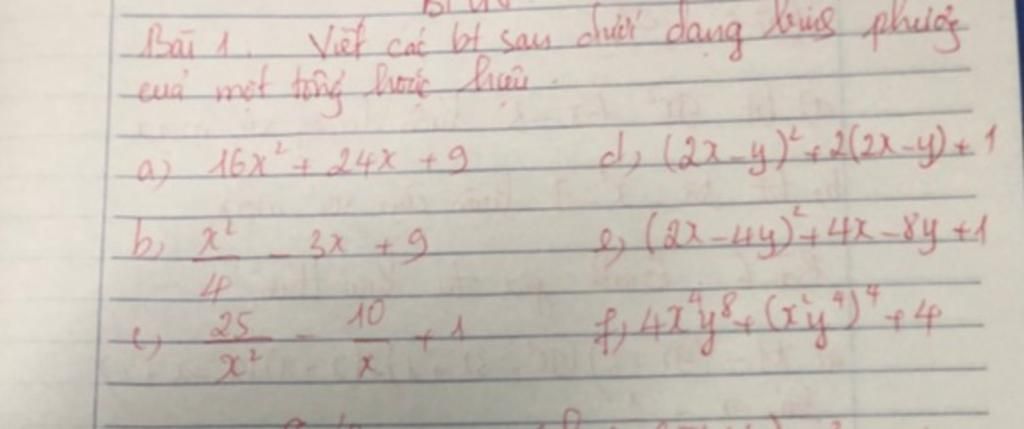 Bài 1. Viết các bt sau dưới dạng bình phương
của một tổng hoặc hiệu.
a) 16x² + 24x + 9 d, (2x-y)² + 2(2x-y) + 1
b, x²/4 - 3x + 9 e, (2x-4y)² + 4x - 8y + 1
c, 25/x² - 10/x + 1 f, 4x⁴y⁸ + (x²y⁴)⁴ + 4